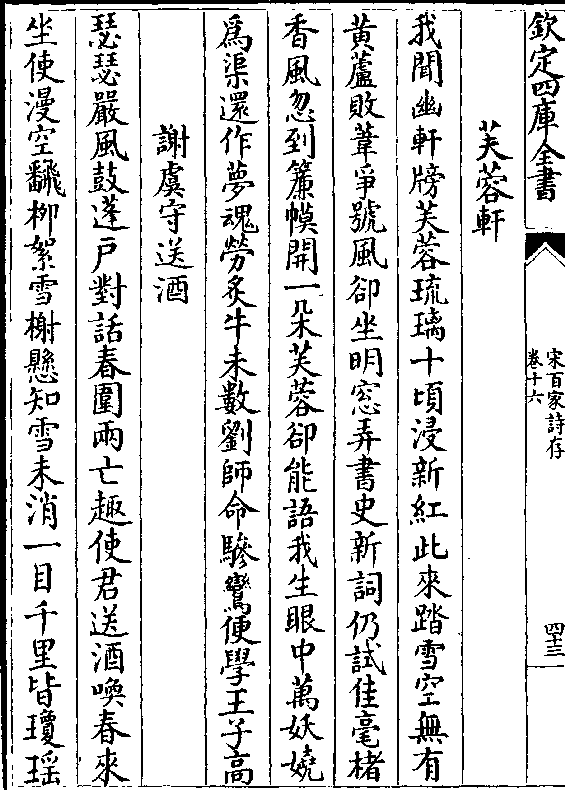 欽定四庫全書
宋百家詩存
卷十六
四十三
芙蓉軒
我聞幽軒牓芙蓉琉璃十頃浸新紅此來踏雪空無有
黃蘆敗葦爭號風卻坐明窓弄書史新詞仍試佳毫楮
香風忽到簾幙開一朵芙蓉卻能語我生眼中萬妖嬈
為渠還作夢魂勞炙牛未數劉師命驂鸞便學王子高
謝虞守送酒
瑟瑟嚴風鼓蓬戶對話春圍兩亡趣使君送酒喚春來
坐使漫空翻栁絮雪榭懸知雪未消一目千里皆瓊瑶